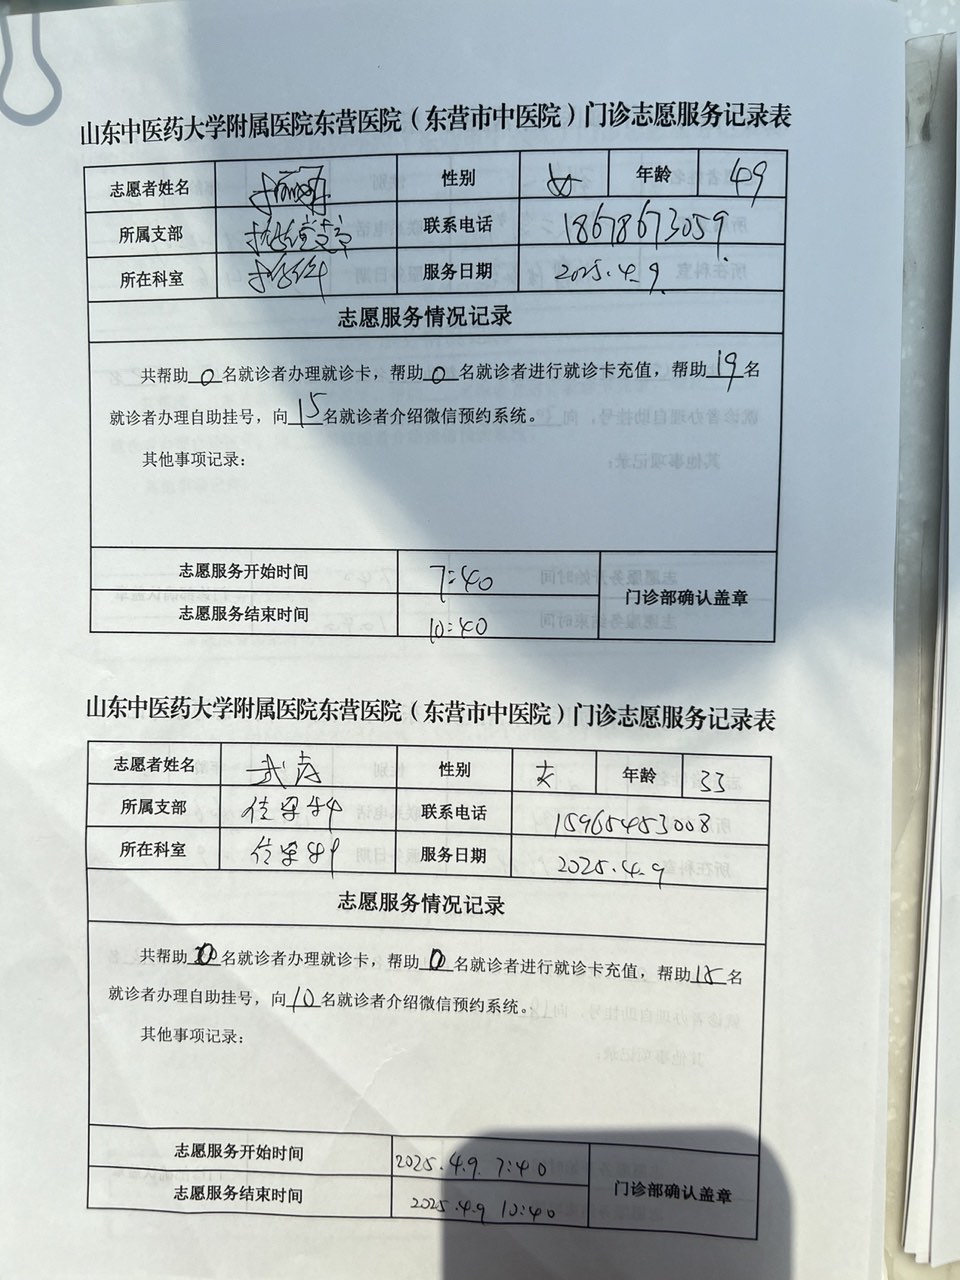 山东中医药大学附属医院东营医院（东营市中医院）门诊志愿服务记录表
志愿者姓名 性别 女 年龄 49
所属支部 联系电话 18678673059
所在科室 服务日期 2025.4.9.
志愿服务情况记录
共帮助0名就诊者办理就诊卡，帮助0名就诊者进行就诊卡充值，帮助19名
就诊者办理自助挂号，向15名就诊者介绍微信预约系统。
其他事项记录：
志愿服务开始时间 7:40
门诊部确认盖章
志愿服务结束时间 10:40
山东中医药大学附属医院东营医院（东营市中医院）门诊志愿服务记录表
志愿者姓名 武 性别 女 年龄 33
所属支部 信息科 联系电话 15965453008
所在科室 信息科 服务日期 2025.4.9
志愿服务情况记录
共帮助0名就诊者办理就诊卡，帮助0名就诊者进行就诊卡充值，帮助15名
就诊者办理自助挂号，向10名就诊者介绍微信预约系统。
其他事项记录：
志愿服务开始时间 2025.4.9. 7:40
门诊部确认盖章
志愿服务结束时间 2025.4.9 10:40